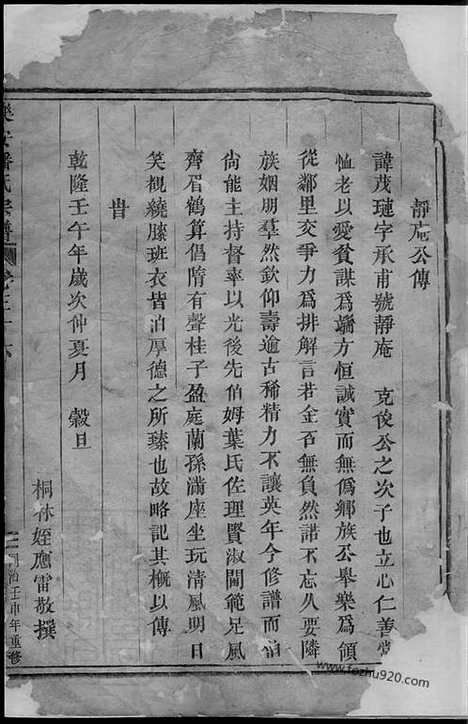 靜庵公傳
諱茂璉字承甫號靜庵 克俊公之次子也立心仁善常
恤老以愛貧謀爲端方恒誠實而無僞鄉族公舉樂爲領
從鄰里交爭力爲排解言若金石無負然諾不忘久要隣
族姻朋羣然欽仰壽逾古稀精力不讓英年今修譜而伯
尙能主持督率以光後先伯姆葉氏佐理賢淑閫範足風
齊眉鶴算倡隋有聲桂子盈庭蘭孫滿座坐玩清風明日
笑觀繞膝班衣皆伯厚德之所臻也故略記其概以傳
旹
乾隆壬午年歲次仲夏月 穀旦
桐林姪應雷敬撰
潘氏宗譜
同治壬申年重修
www.fozhu920.com